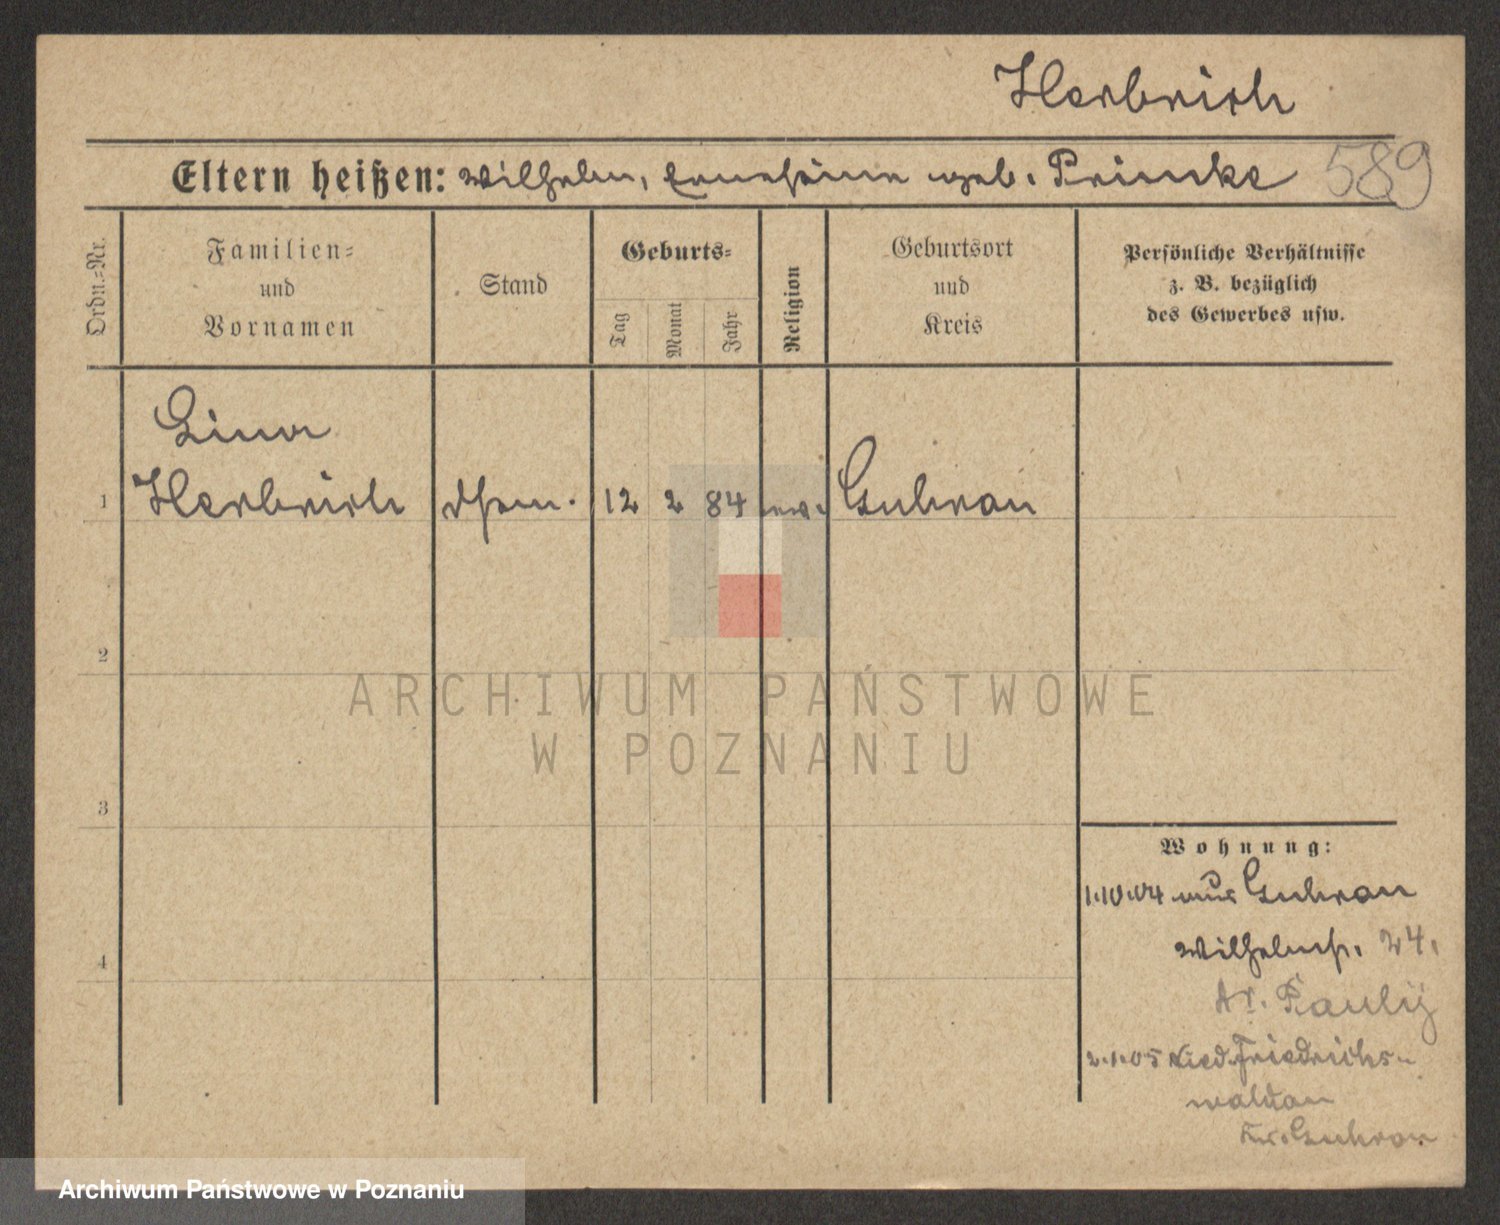 Herbrich
Eltern heißen: Wilhelm, Ernestine geb. Prinke 589
Ordn.=Nr.
Familien=
und
Vornamen
Stand
Geburts=
Tag
Monat
Jahr
Religion
Geburtsort
und
Kreis
Persönliche Verhältnisse
z. B. bezüglich
des Gewerbes usw.
Lina
1 Herbrich 12 2 84 ev. Guhrau
2
ARCHIWUM PAŃSTWOWE
W POZNANIU
3
Wohnung:
1.10.04 aus Guhrau
Wilhelmstr. 24.
4
Dr. Pauly
2.1.05 Nied. Friedrichs-
waldau
Kr. Guhrau
Archiwum Państwowe w Poznaniu